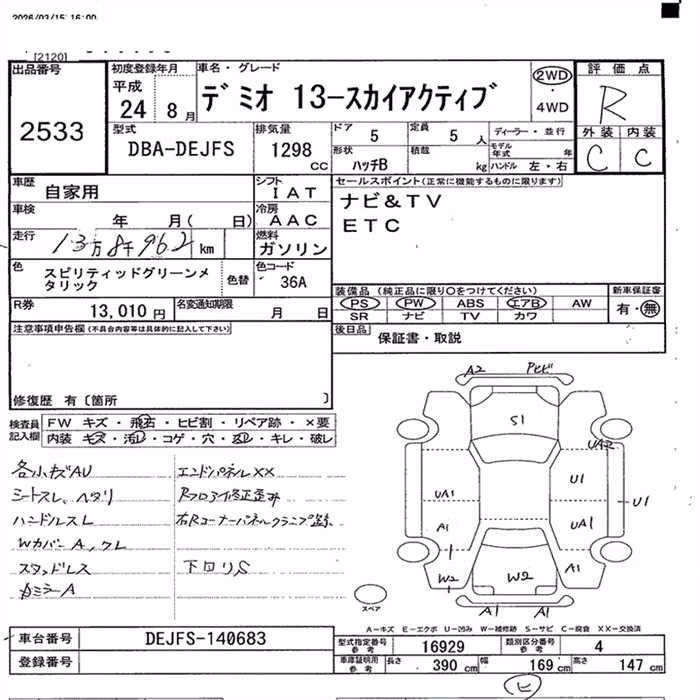 2026/03/15 16:00
[2120]
出品番号
2533
初度登録年月
平成
24 8月
車名・グレード
デミオ 13-スカイアクティブ
2WD
・
4WD
評価点
R
外装 内装
C C
型式
DBA-DEJFS
排気量
1298
CC
ドア 5
定員 5 人
形状 ハッチB
積載 kg
ディーラー・並行
モデル年式 年
ハンドル 左・右
車歴 自家用
シフト IAT
車検 年 月( 日)
冷房 AAC
走行 13万8千962 km
燃料 ガソリン
色 スピリティッドグリーンメタリック
色替
色コード 36A
R券 13,010 円
名変通知期限 月 日
セールスポイント(正常に機能するものに限ります)
ナビ&TV
ETC
装備品 (純正品に限り○をつけてください)
PS PW ABS エアB AW
SR ナビ TV カワ
新車保証書
有・無
後日品
保証書・取説
注意事項申告欄(不具合内容等は具体的に記入して下さい)
修復歴 有〔箇所 〕
検査員記入欄
FW キズ・飛石・ヒビ割・リペア跡・×要
内装 キズ・汚レ・コゲ・穴・スレ・キレ・破レ
各小キズAU
シートスレ、ヘタリ
ハンドルスレ
Wカバー A、クレ
スタッドレス
カミラーA
エンドパネルXX
Rフロア修正歪み
右Rコーナーパネルクランプ跡
下回りS
A2
S1
UA2
U1
U1
UA1
UA1
A1
A1
W2
W2
A1 A1
スペア
A-キズ E-エクボ U-凹み W-補修跡 S-サビ C-腐食 XX-交換済
車台番号 DEJFS-140683
登録番号
型式指定番号 参考 16929
類別区分番号 参考 4
車庫証明用 参考 長さ 390 cm 幅 169 cm 高さ 147 cm
ヒ